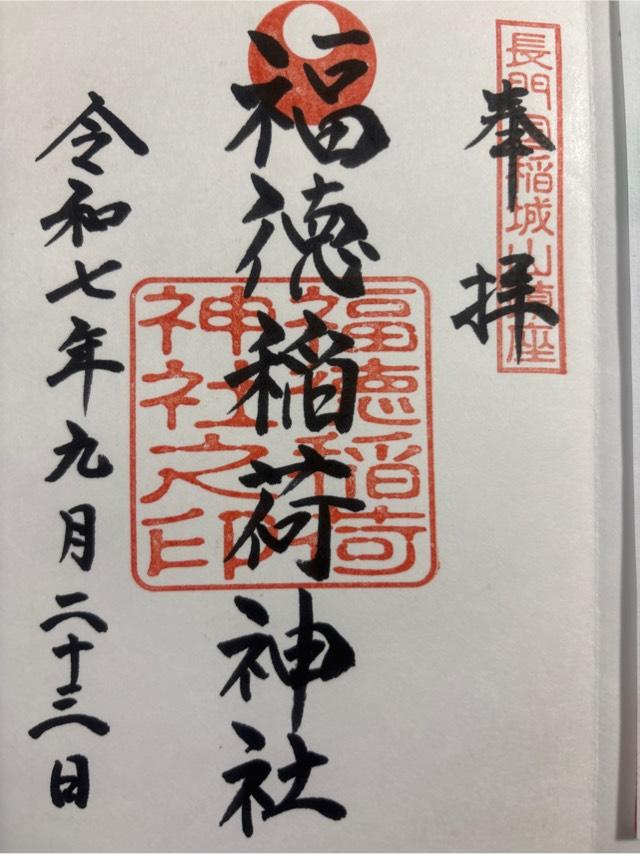 長門国稲城山鎮座
奉拝
福徳稲荷神社
福徳稲荷
神社之印
令和七年九月二十三日